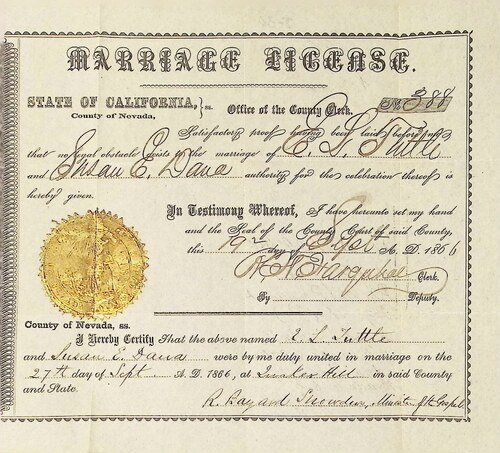 MARRIAGE LICENSE.
STATE OF CALIFORNIA, } ss. Office of the County Clerk. No. 388
County of Nevada,
Satisfactory proof having been laid before me
that no legal obstacle exists to the marriage of E. L. Tuttle
and Susan E. Dana authority for the celebration thereof is
hereby given.
In Testimony Whereof, I have hereunto set my hand
and the Seal of the County Court of said County,
this day of A. D. 1866
Clerk.
By Deputy.
County of Nevada, ss.
I Hereby Certify That the above named E. L. Tuttle
and Susan E. Dana were by me duly united in marriage on the
27th day of Sept A. D. 1866, at Quaker Hill in said County
and State.
R. Bayard Snowden, Minister of the Gospel.